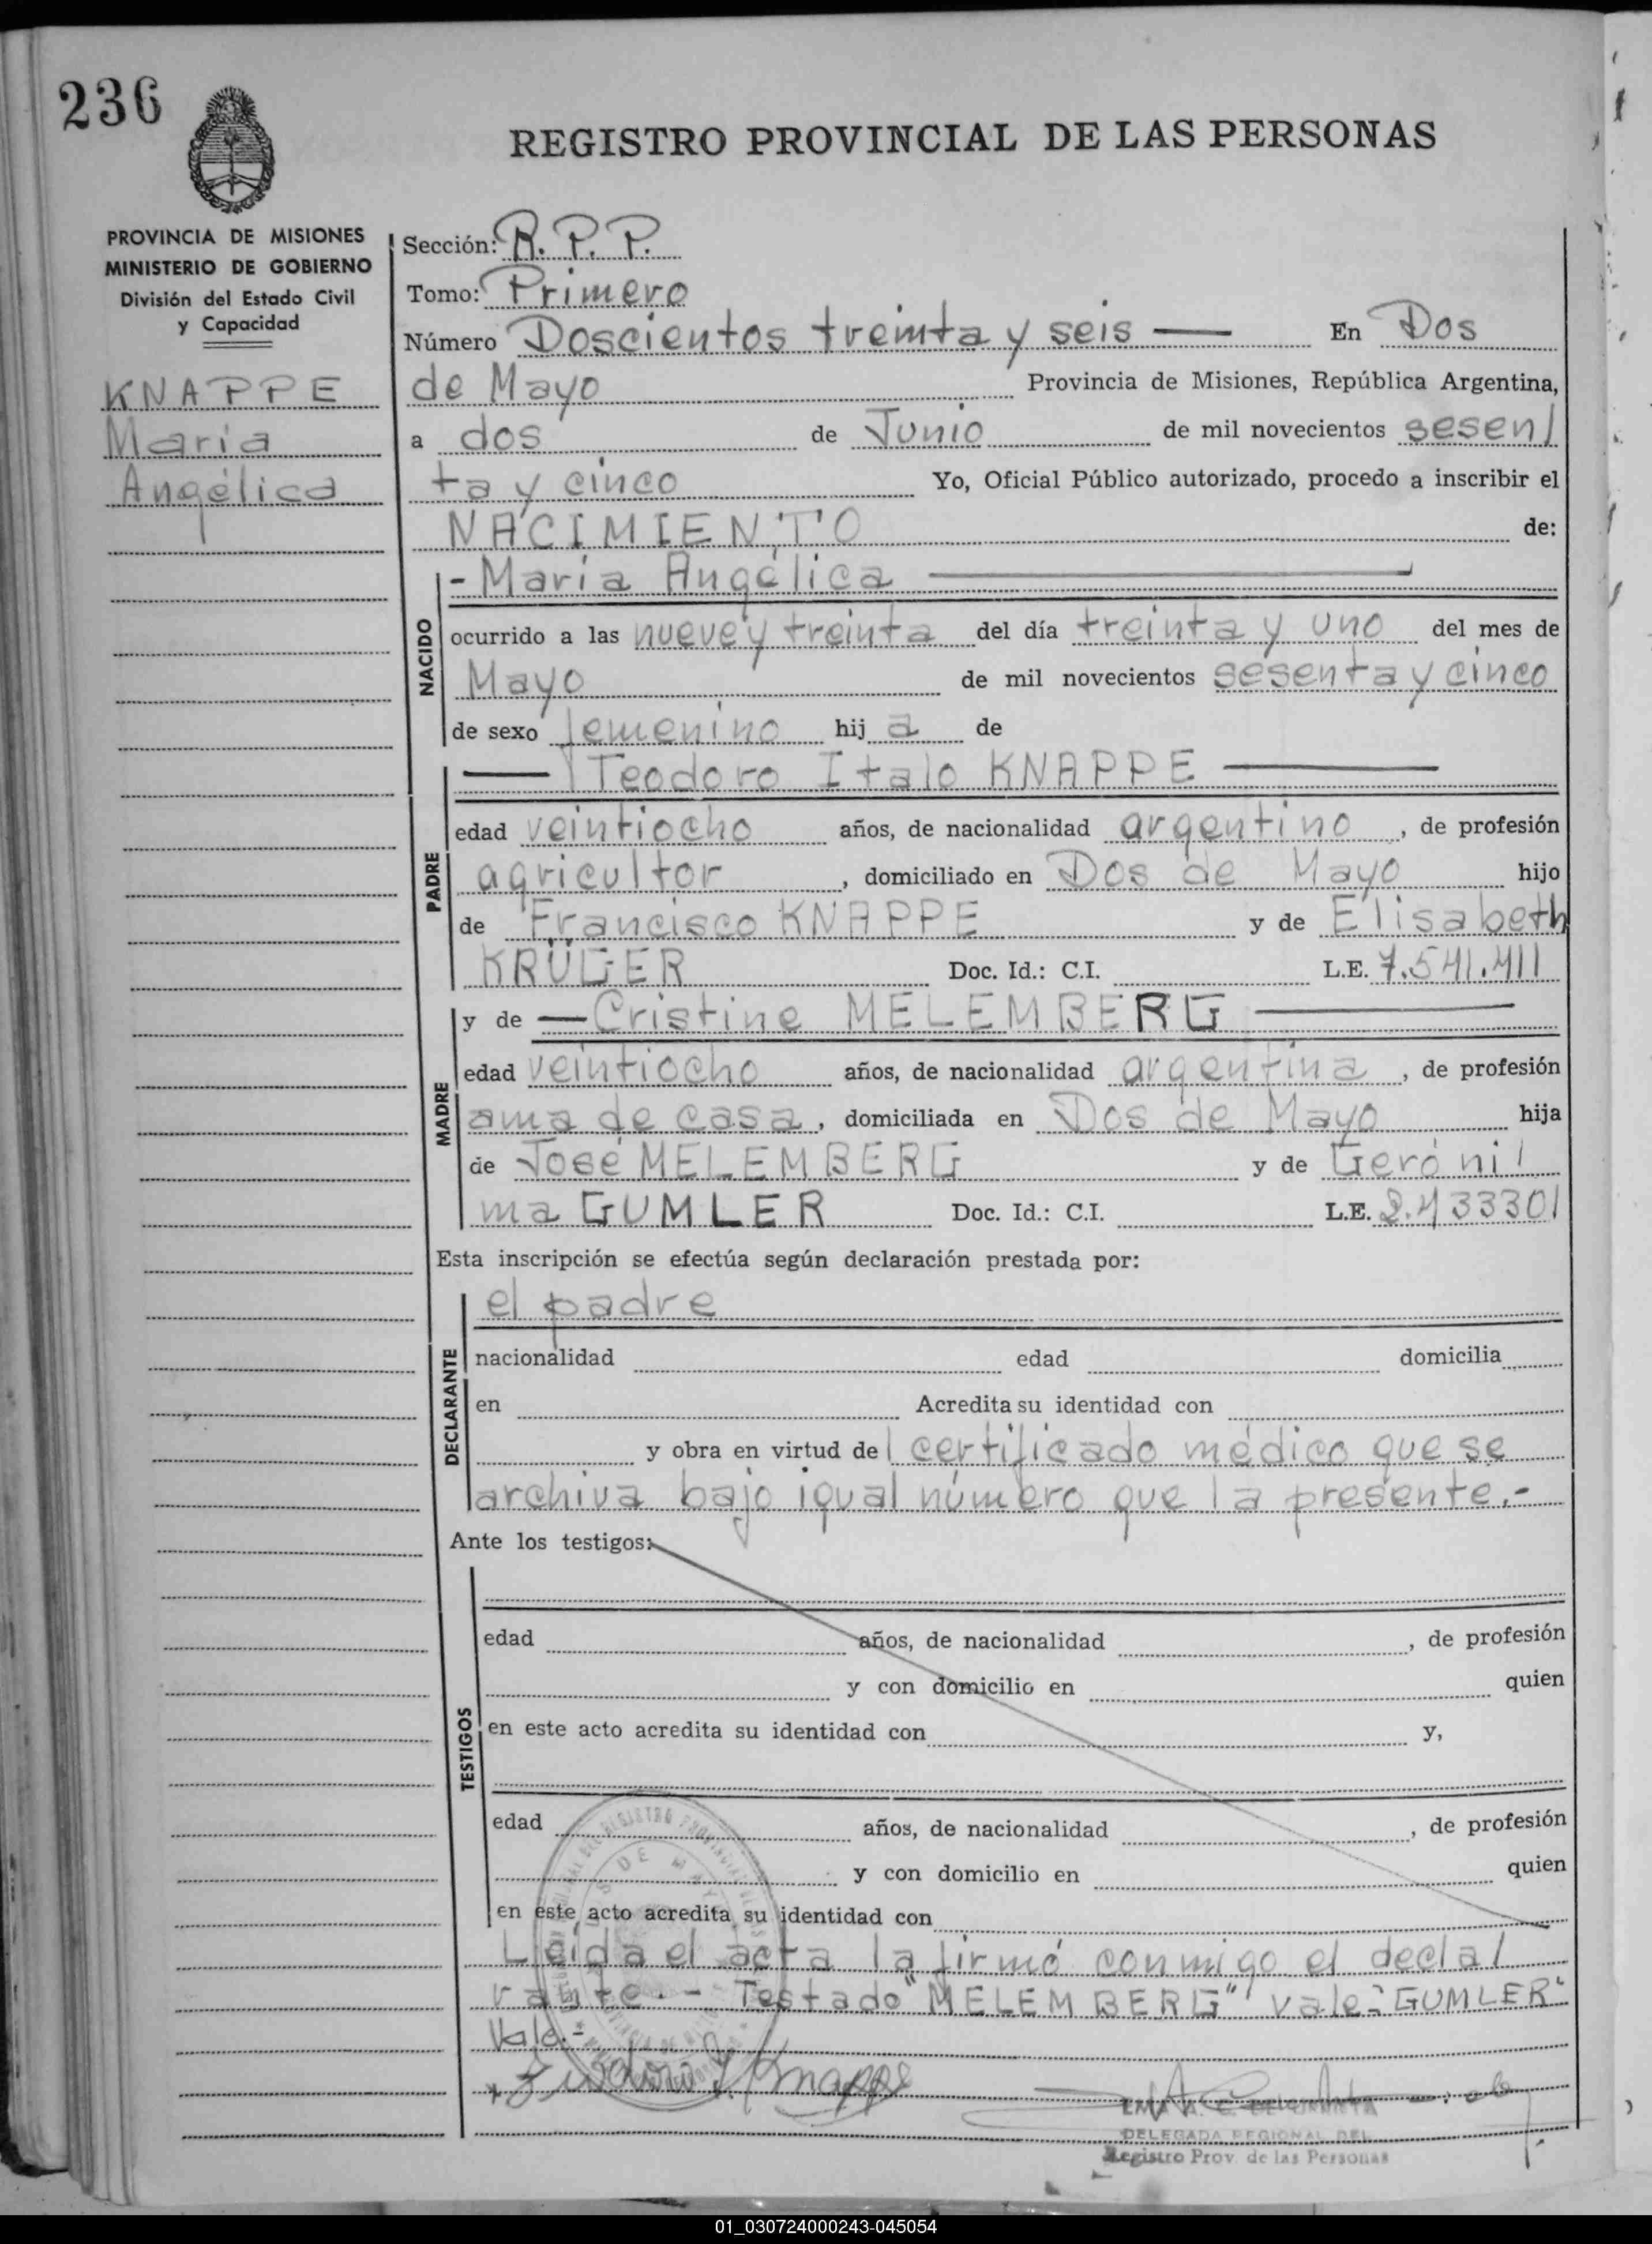 236
REGISTRO PROVINCIAL DE LAS PERSONAS
PROVINCIA DE MISIONES
MINISTERIO DE GOBIERNO
División del Estado Civil
y Capacidad
KNAPPE
María
Angélica
Sección: R. P. P.
Tomo: Primero
Número Doscientos treinta y seis — En Dos
de Mayo Provincia de Misiones, República Argentina,
a dos de Junio de mil novecientos sesen/
ta y cinco Yo, Oficial Público autorizado, procedo a inscribir el
NACIMIENTO de:
NACIDO
- María Angélica —
ocurrido a las nueve y treinta del día treinta y uno del mes de
Mayo de mil novecientos sesenta y cinco
de sexo femenino hij a de
PADRE
— Teodoro Italo KNAPPE —
edad veintiocho años, de nacionalidad argentino, de profesión
agricultor, domiciliado en Dos de Mayo hijo
de Francisco KNAPPE y de Elisabeth
KRÜGER Doc. Id.: C.I. L.E. 7.541.411
MADRE
y de — Cristine MELEMBERG —
edad veintiocho años, de nacionalidad argentina, de profesión
ama de casa, domiciliada en Dos de Mayo hija
de José MELEMBERG y de Geróni/
ma GUMLER Doc. Id.: C.I. L.E. 2.433301
Esta inscripción se efectúa según declaración prestada por:
DECLARANTE
el padre
nacionalidad edad domicilia
en Acredita su identidad con
y obra en virtud del certificado médico que se
archiva bajo igual número que la presente.-
Ante los testigos:
TESTIGOS
edad años, de nacionalidad , de profesión
y con domicilio en quien
en este acto acredita su identidad con y,
edad años, de nacionalidad , de profesión
y con domicilio en quien
en este acto acredita su identidad con
Leída el acta la firmó conmigo el decla/
rante.- Testado "MELEMBERG" vale-"GUMLER"
Vale.-
Knappe
DELEGADA REGIONAL DEL
Registro Prov. de las Personas
01_030724000243-045054